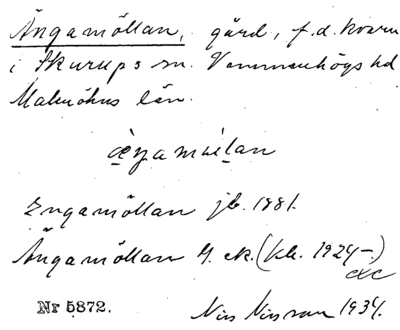 Ängamöllan, gård, f.d. kvarn
i Skurups sn. Vemmenhögs hd
Malmöhus län.
Engamöllan jb. 1881.
Ängamöllan G. ek. (kb. 1924–.)
Nr 5872.
Nils Nilsson 1934.